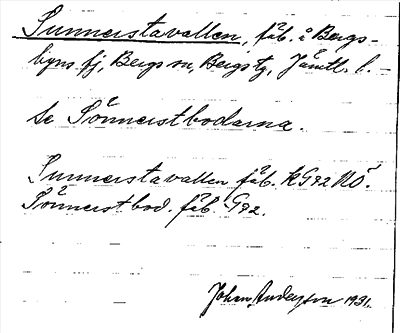 Sunnerstavallen, fäb. å Bergs-
byns fj, Bergs sn, Bergs tg, Jämtl. l.
Se Sönnerstbodarna.
Sunnerstavallen fäb. kG92 NÖ.
Sönnerstbod. fäb. G92.
Johan Anderson 1931.